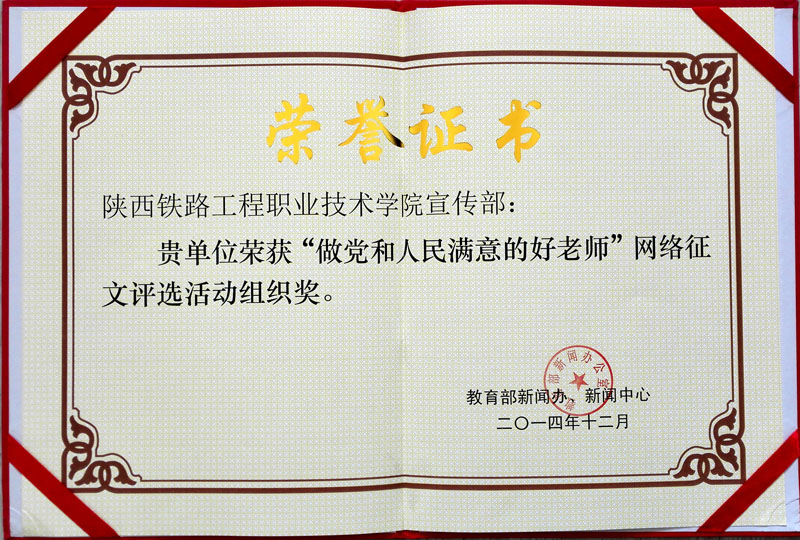 荣誉证书
陕西铁路工程职业技术学院宣传部：
贵单位荣获“做党和人民满意的好老师”网络征
文评选活动组织奖。
部新闻办公室
教育部新闻办、新闻中心
二〇一四年十二月